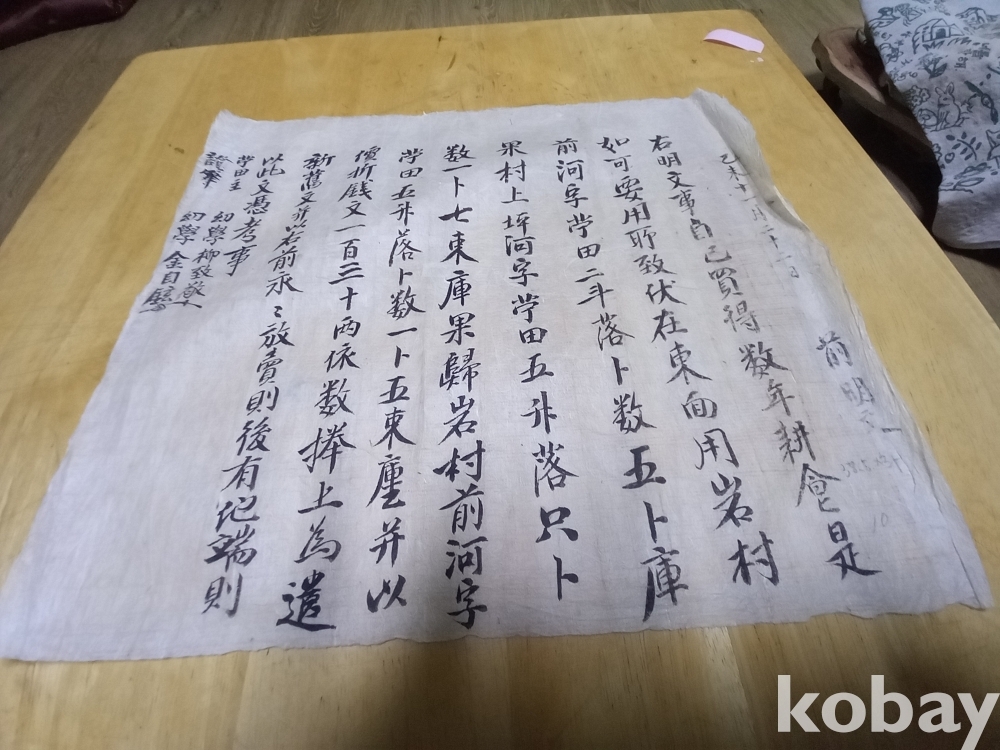 己未十一月二十一日 前明文
右明文事自己買得数年耕食是
如可要用所致伏在東面用岩村
前河字苧田二斗落卜数五卜庫
果村上坪河字苧田五升落只卜
数一卜七束庫果歸岩村前河字
苧田五升落卜数一卜五束庫并以
價折錢文一百三十两依数捧上為遣
新舊文并以右前永〻放賣則後有地端則
以此文憑考事
苧田主 幼學 柳致
證筆 幼學 金
kobay